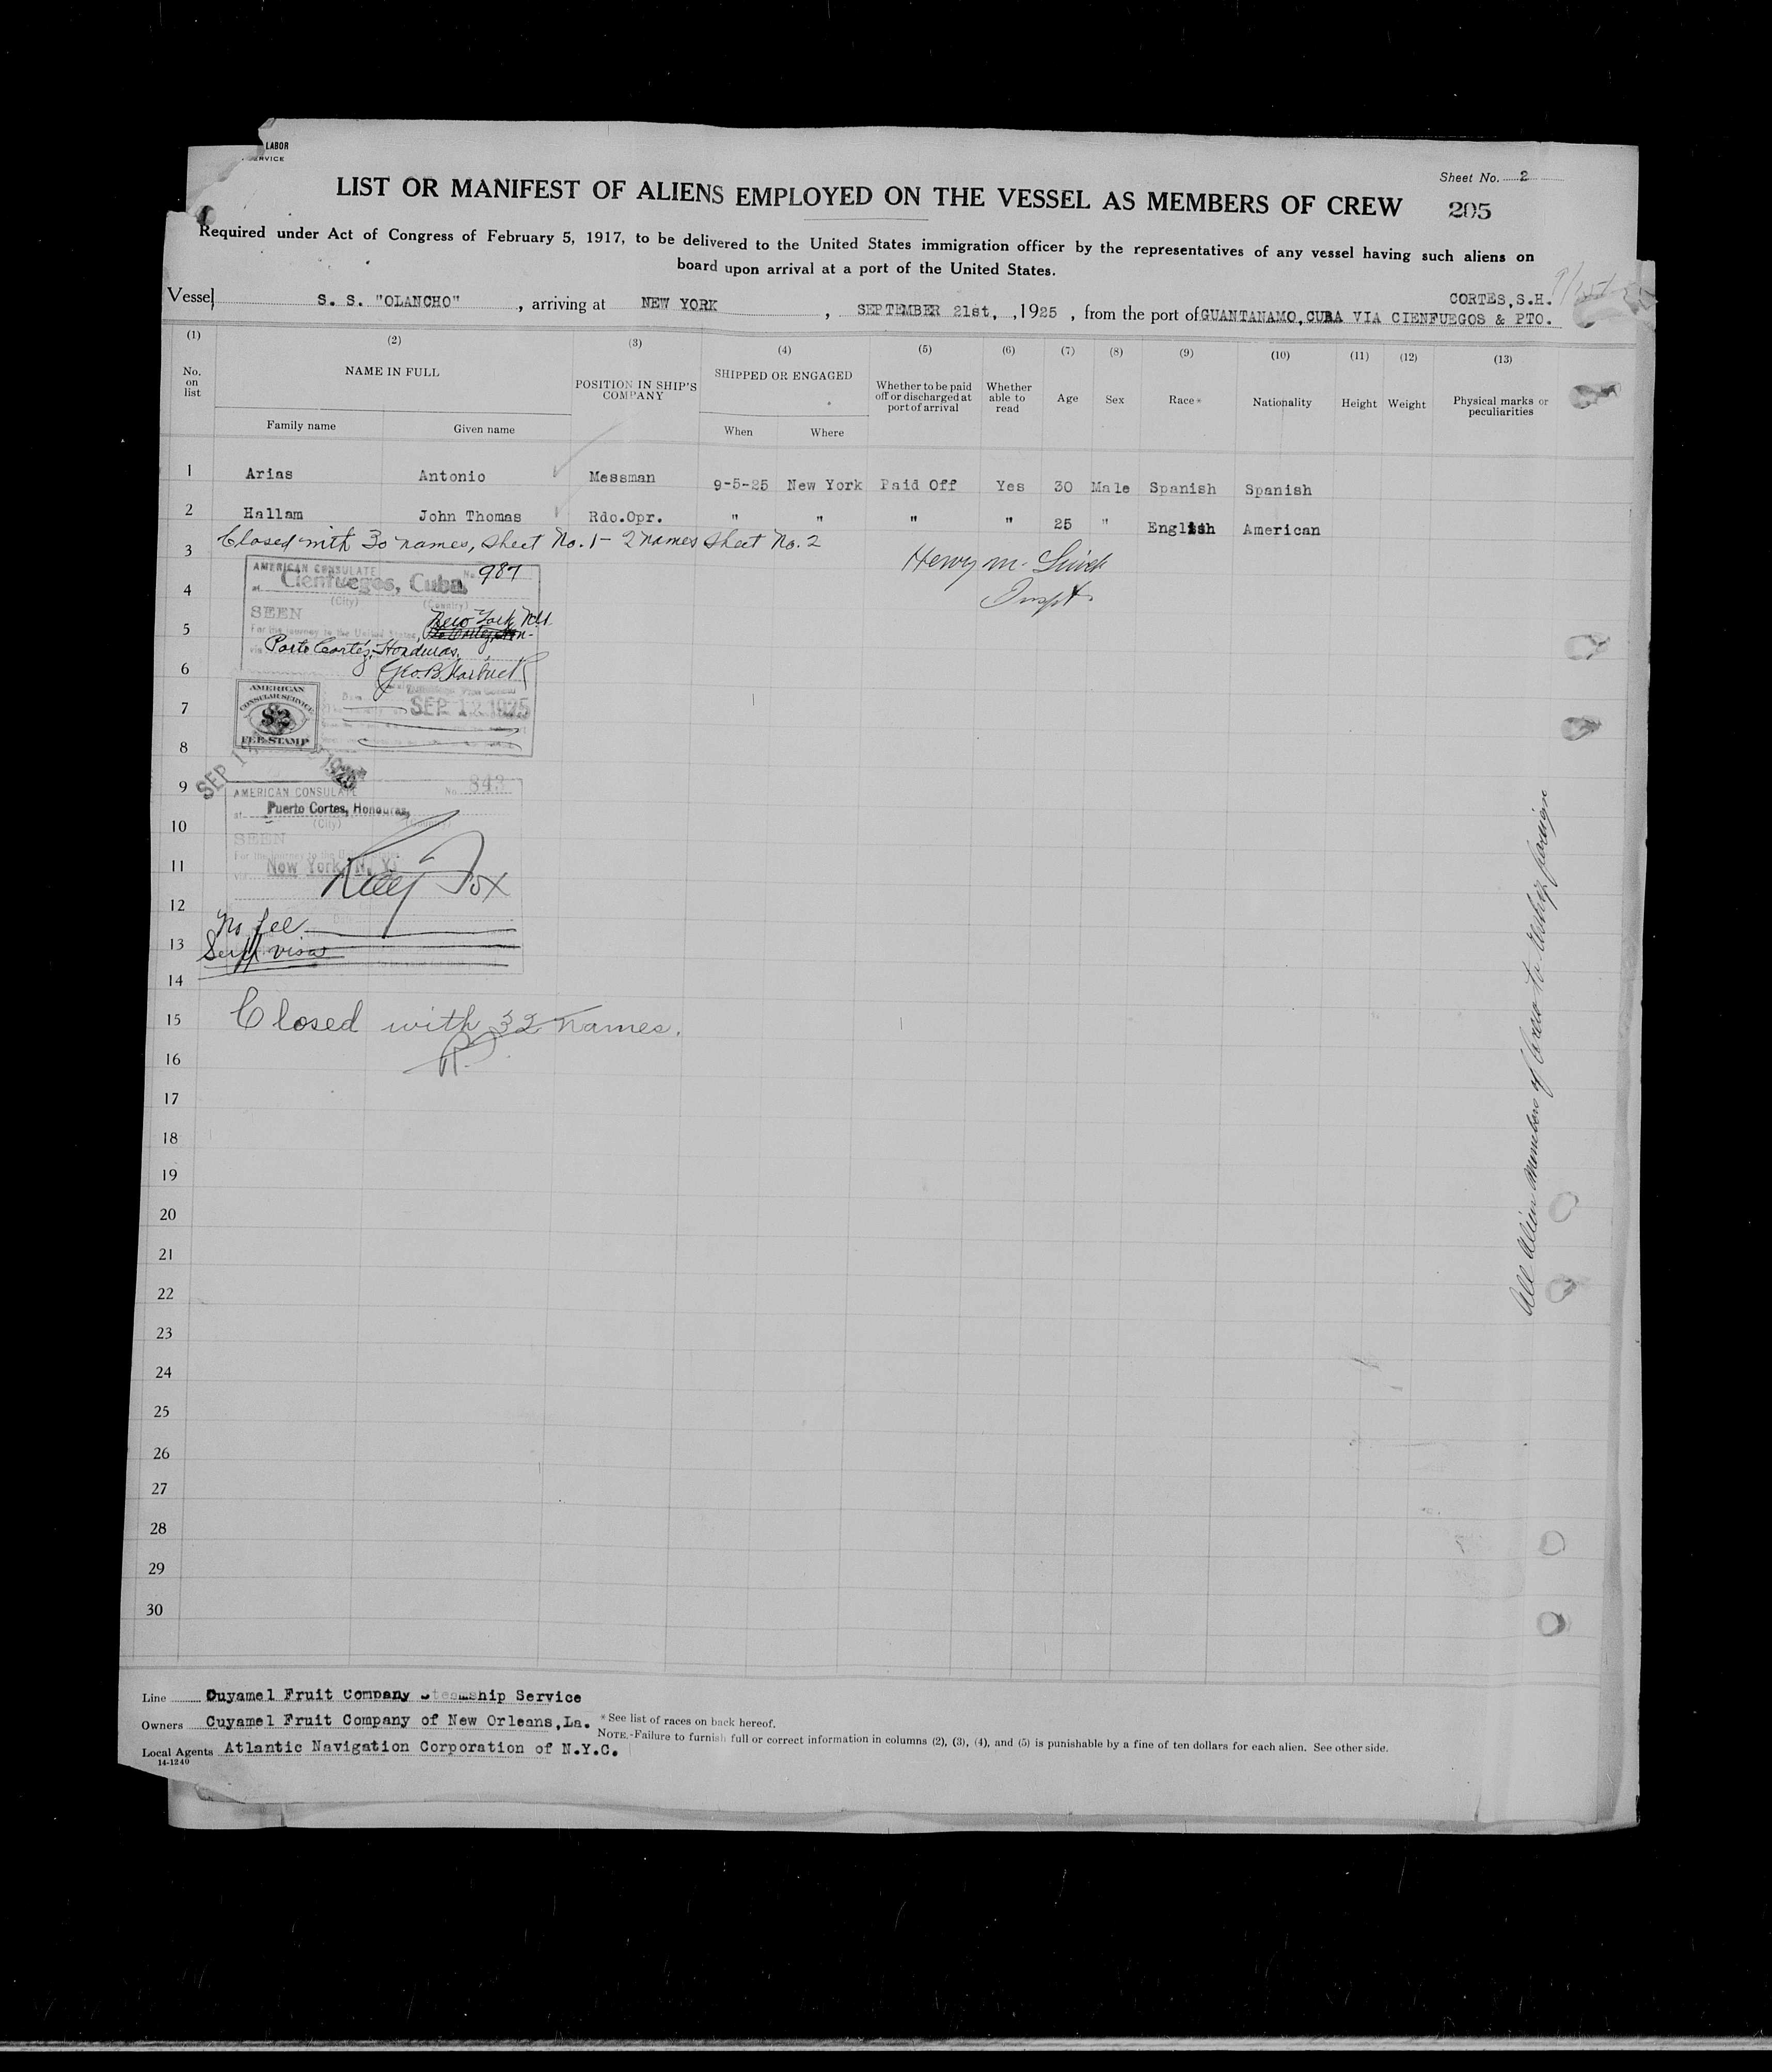 LABOR
SERVICE
Sheet No. 2
LIST OR MANIFEST OF ALIENS EMPLOYED ON THE VESSEL AS MEMBERS OF CREW 205
Required under Act of Congress of February 5, 1917, to be delivered to the United States immigration officer by the representatives of any vessel having such aliens on
board upon arrival at a port of the United States.
CORTES,S.H.
Vessel S. S. "OLANCHO", arriving at NEW YORK, SEPTEMBER 21st, ,1925, from the port of GUANTANAMO,CUBA VIA CIENFUEGOS & PTO.
(1) (2) (3) (4) (5) (6) (7) (8) (9) (10) (11) (12) (13)
No. on list NAME IN FULL POSITION IN SHIP'S COMPANY SHIPPED OR ENGAGED Whether to be paid off or discharged at port of arrival Whether able to read Age Sex Race* Nationality Height Weight Physical marks or peculiarities
Family name Given name When Where
1 Arias Antonio Messman 9-5-25 New York Paid Off Yes 30 Male Spanish Spanish
2 Hallam John Thomas Rdo.Opr. " " " " 25 " English American
Closed with 30 names, sheet No. 1 - 2 names sheet No. 2
3
Henry M.
Inspt.
AMERICAN CONSULATE No. 987
at Cienfuegos, Cuba
(City) (Country)
4
SEEN
For the journey to the United States, New York, N.Y.
5
via Porto Cortéz, Honduras.
6
Geo. B.
AMERICAN
CONSULAR SERVICE
$2
FEE STAMP
7
SEP 12 1925
8
SEP 1
9
AMERICAN CONSULATE No. 843
at Puerto Cortes, Honduras,
(City) (Country)
10
SEEN
For the journey to the United States
11
New York, N. Y.
Ray Fox
12
No fee
13
Seaff visas
14
15 Closed with 32 names.
16
R.
17
18
19
20
21
22
23
24
25
26
27
28
29
30
All Alien Members of Crew to Reship foreign
Line Cuyamel Fruit Company Steamship Service
Owners Cuyamel Fruit Company of New Orleans,La. * See list of races on back hereof.
Local Agents Atlantic Navigation Corporation of N.Y.C. NOTE.-Failure to furnish full or correct information in columns (2), (3), (4), and (5) is punishable by a fine of ten dollars for each alien. See other side.
14-1240